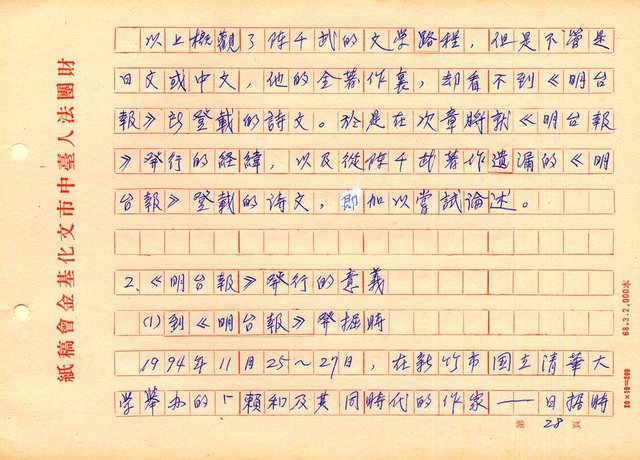 以上概觀了陈千武的文学路程，但是不管是
日文或中文，他的全著作裏，却看不到《明台
報》所登載的詩文。於是在次章將就《明台報
》發行的経緯，以及從陈千武著作遺漏的《明
台報》登載的诗文，即加以嘗試論述。
2、《明台報》発行的意義
(1)到《明台報》発掘時
1994年11月25～27日，在新竹市国立清華大
学舉办的「賴和及其同時代的作家——日据時
第28頁
財團法人臺中市文化基金會稿紙
68.3.2,000本
20×10=200